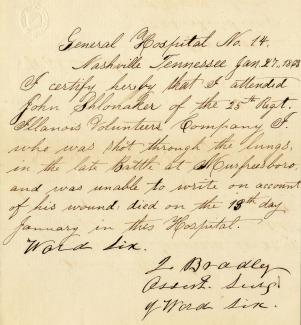 General Hospital No. 14.
Nashville Tennessee Jan. 27, 1863
I certify hereby that I attended
John Shlonaker of the 25th Regt.
Illanois Volunteers Company I.
who was shot through the lungs,
in the late Battle at Murfreesboro,
and was unable to write on account
of his wound; died on the 13th day
January in this Hospital.
Ward Six.
L Bradley
Assist. Surg.
of Ward Six.